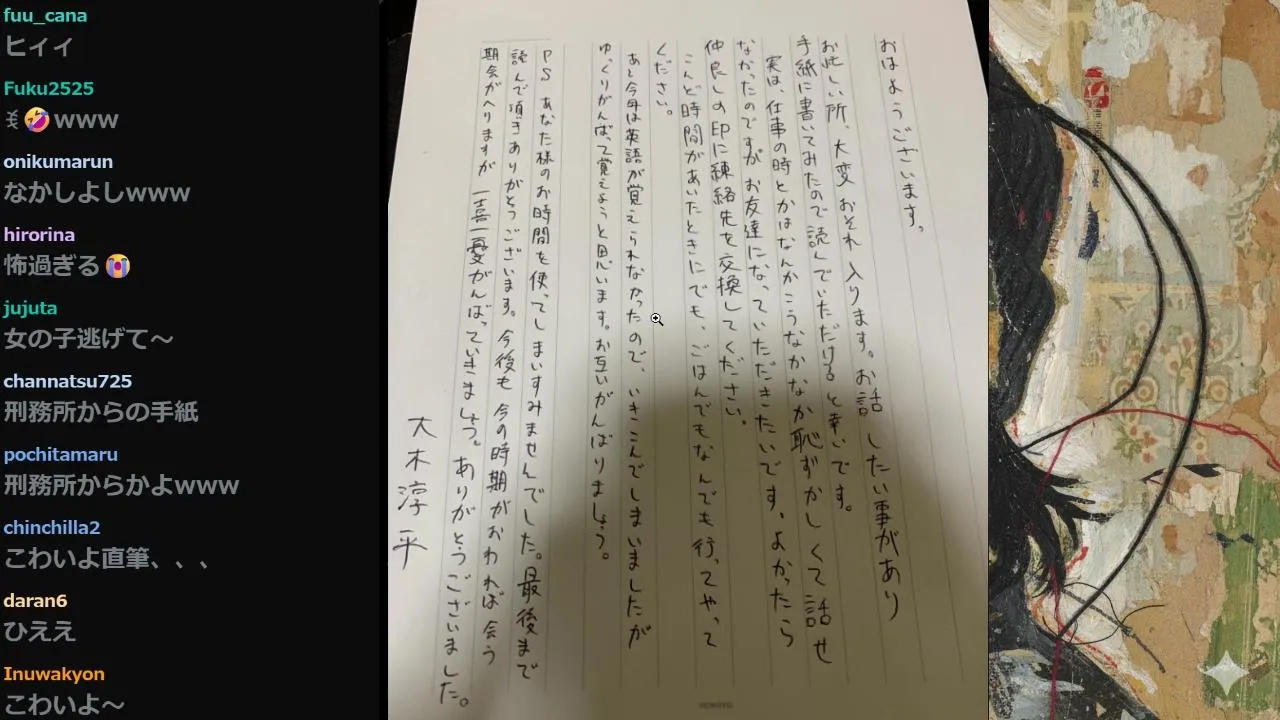 fuu_cana
ヒィィ
Fuku2525
🤣www
onikumarun
なかしよしwww
hirorina
怖過ぎる😭
jujuta
女の子逃げて〜
channatsu725
刑務所からの手紙
pochitamaru
刑務所からかよwww
chinchilla2
こわいよ直筆、、、
daran6
ひええ
Inuwakyon
こわいよ〜
おはようございます。
お忙しい所、大変おそれ入ります。お話したい事があり
手紙に書いてみたので読んでいただけると幸いです。
実は、仕事の時とかはなんかこうなかなか恥ずかしくて話せ
なかったのですが お友達になっていただきたいです、よかったら
仲良しの印に練絡先を交換してください。
こんど時間があいたときにでも、ごはんでもなんでも行ってやって
ください。
あと今年は英語が覚えられなかったので、いきこんでしまいましたが
ゆっくりがんばって覚えようと思います。お互いがんばりましょう。
PS あなた様のお時間を使ってしまいすみませんでした。最後まで
読んで頂きありがとうございます。今後も今の時期がおわれば会う
期会がへりますが 一喜一憂がんばっていきましょう。ありがとうございました。
大木淳平